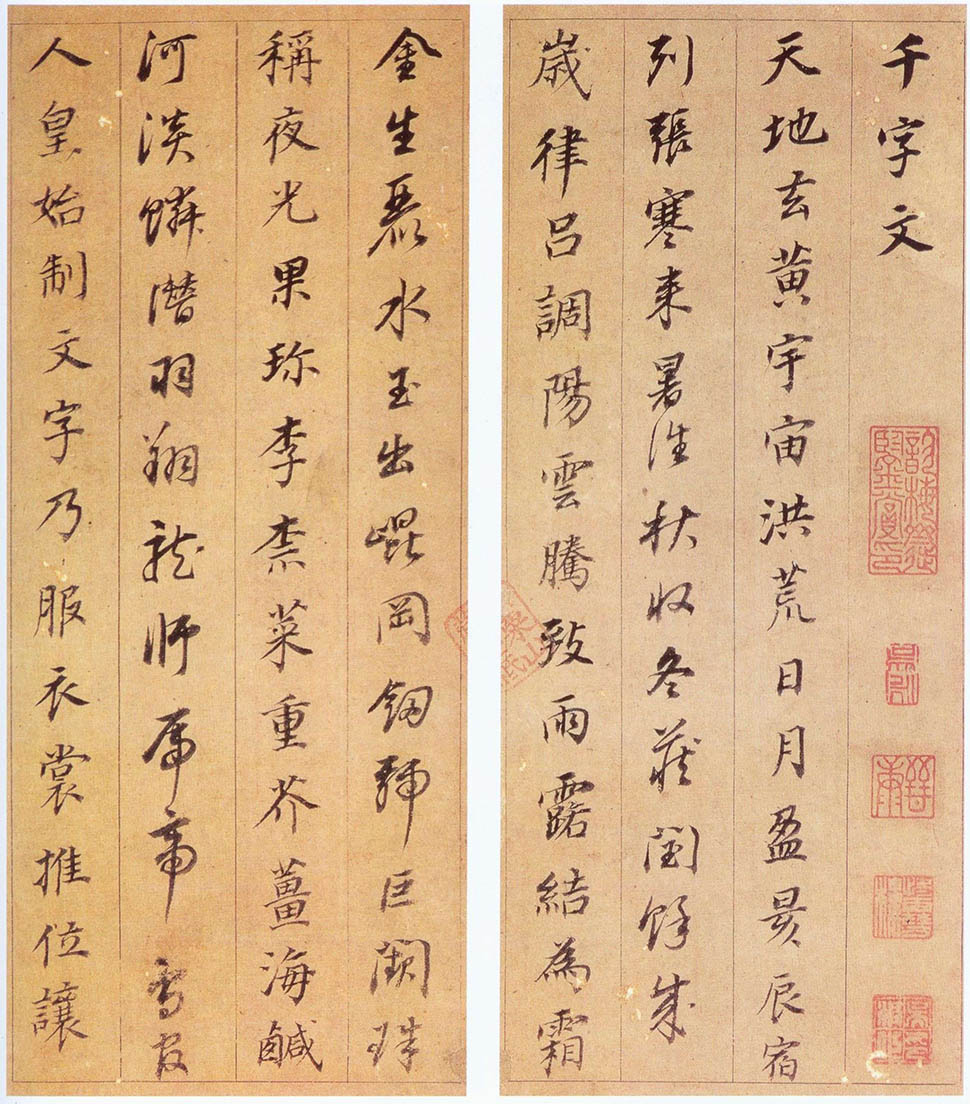 千字文
天地玄黄宇宙洪荒日月盈昃辰宿
列張寒来暑往秋收冬藏閏餘成
歲律呂調陽雲騰致雨露結為霜
金生麗水玉出崐岡劒號巨闕珠
稱夜光果珎李柰菜重芥薑海鹹
河淡鱗潛羽翔龍師帝鳥官
人皇始制文字乃服衣裳推位讓